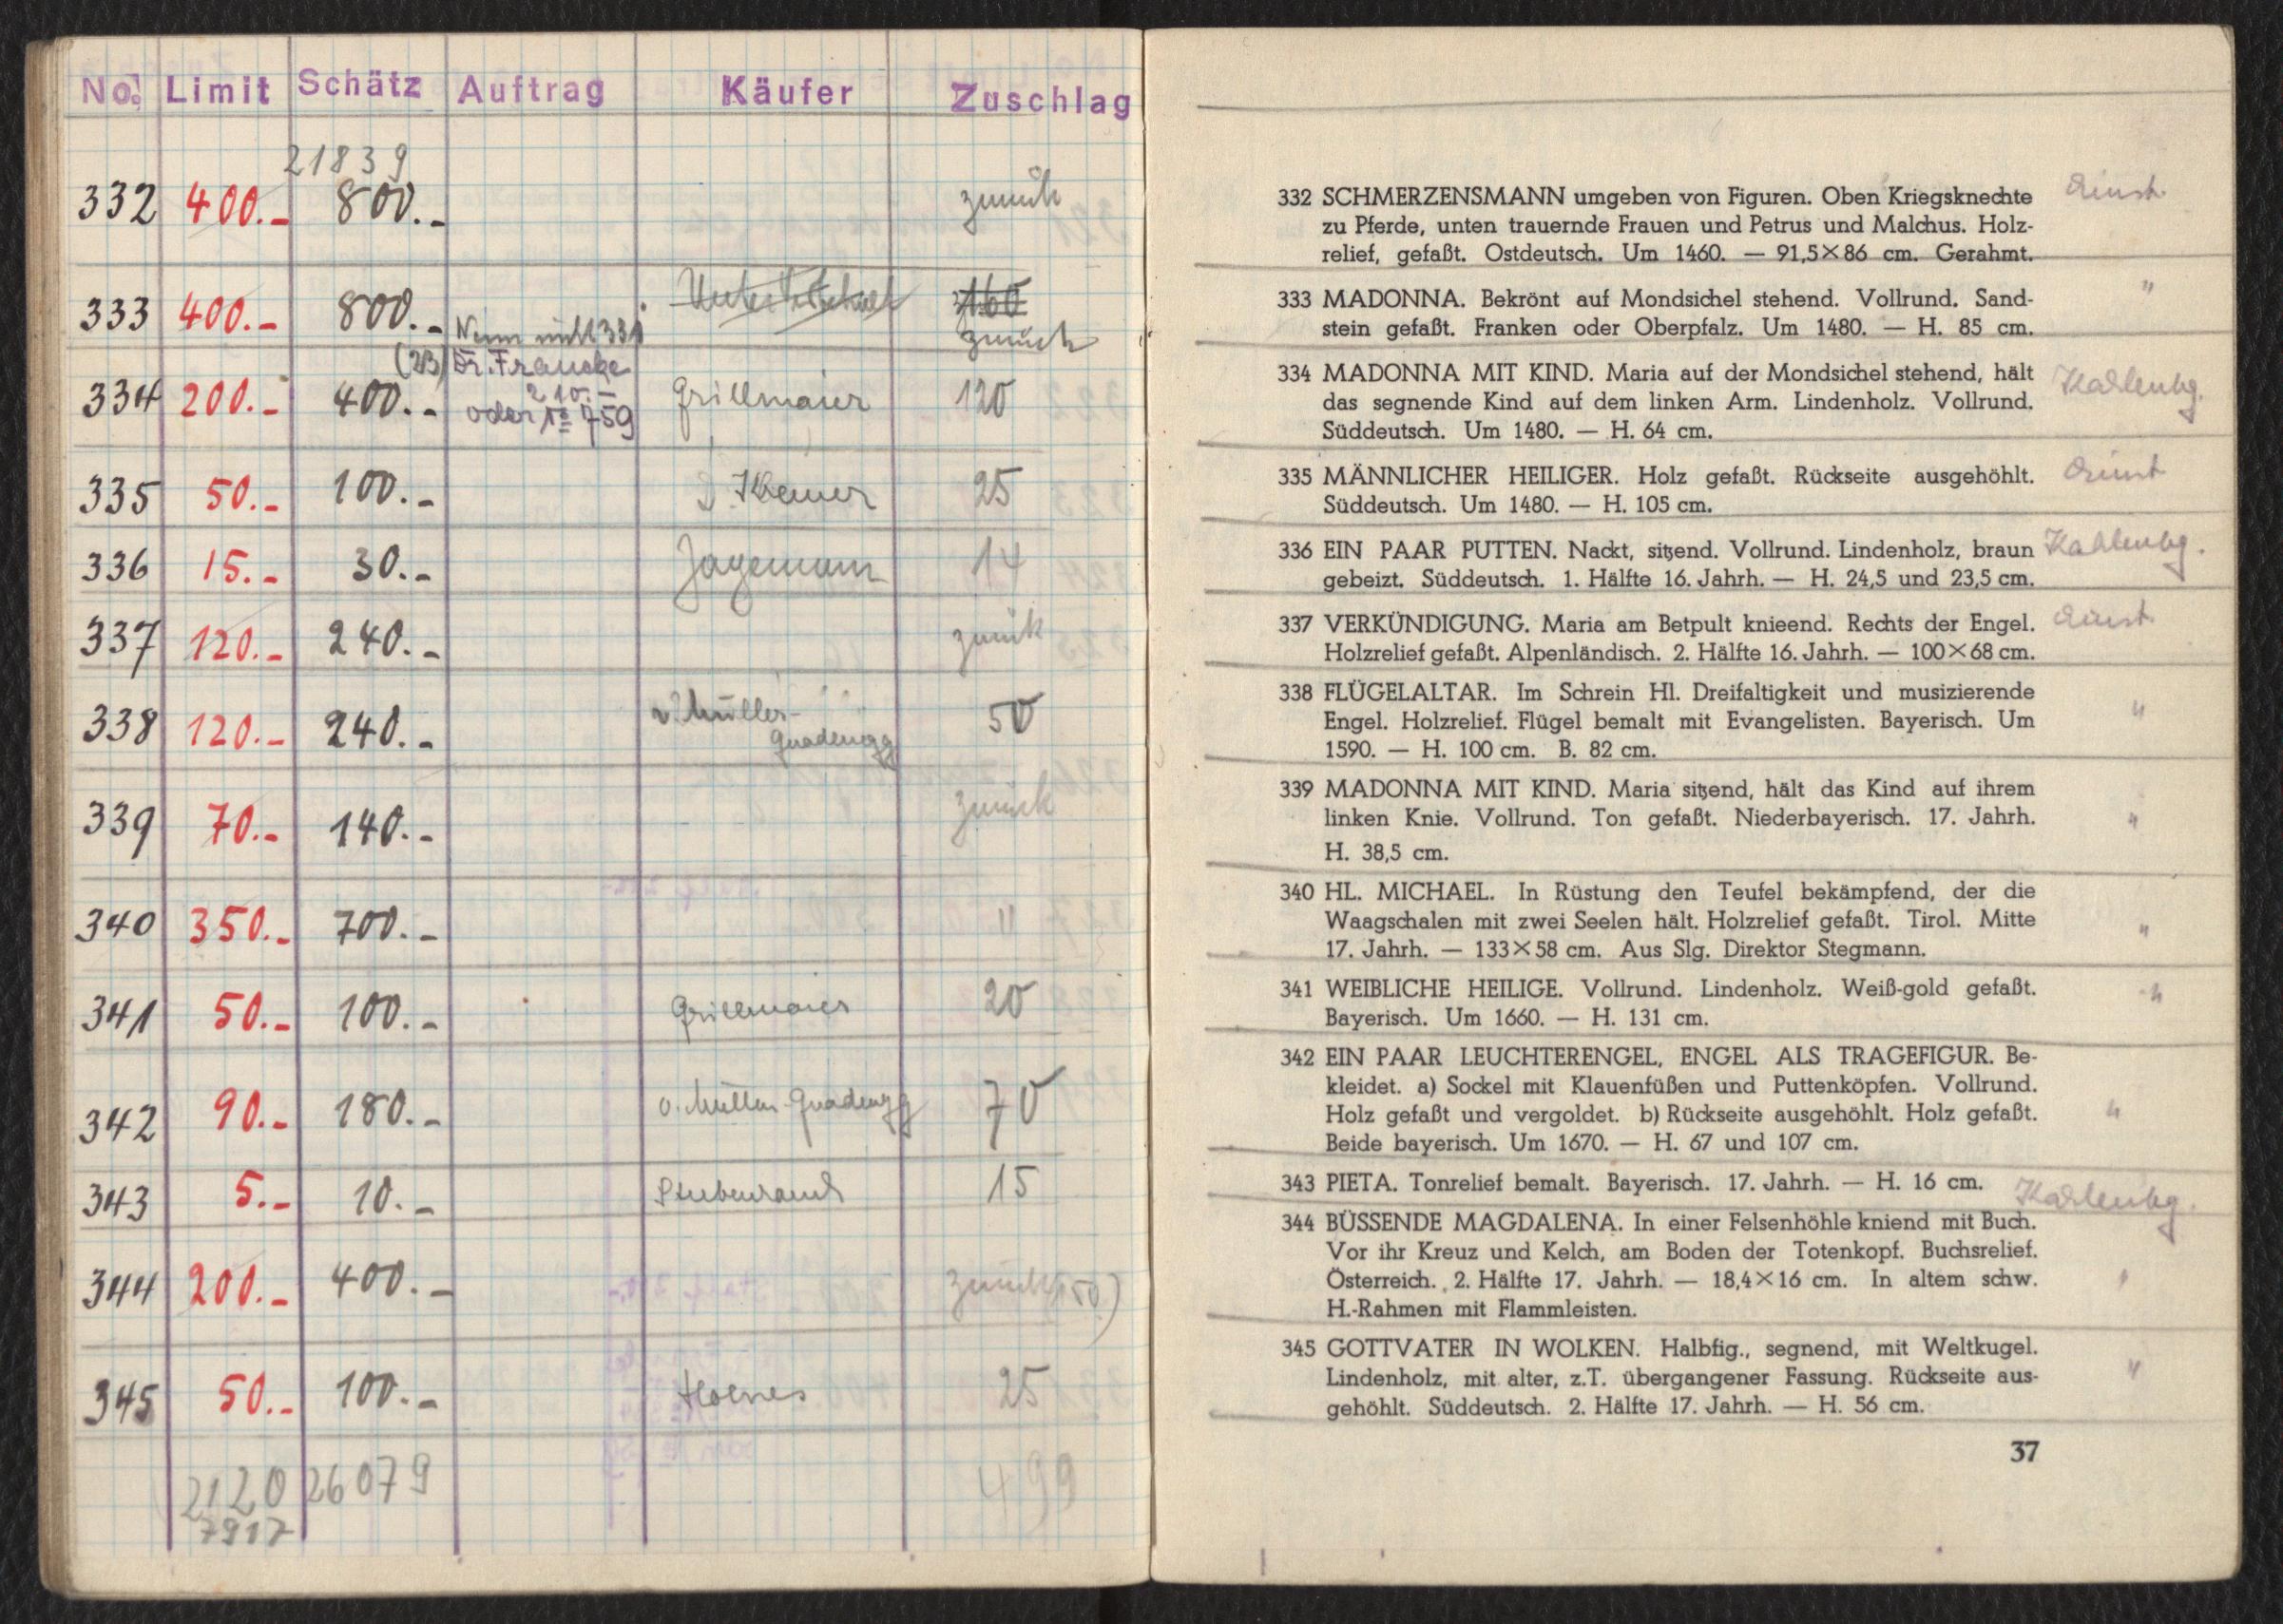 No. Limit Schätz Auftrag Käufer Zuschlag
21839
332 400.- 800.- zurück
333 400.- 800.- 160
Wenn nicht 331 zurück
(23) Dr. Francke
334 200.- 400.- 210.- Grillmaier 120
oder № 759
335 50.- 100.- 25
336 15.- 30.- Jagemann 14
337 120.- 240.- zurück
338 120.- 240.- v. Müller- 50
Gnadenegg
339 70.- 140.- zurück
340 350.- 700.- "
341 50.- 100.- Grillmaier 20
342 90.- 180.- v. Müller-Gnadenegg 70
343 5.- 10.- Stubenrauch 15
344 200.- 400.- zurück (150)
345 50.- 100.- 25
2120 26079 499
7917
332 SCHMERZENSMANN umgeben von Figuren. Oben Kriegsknechte
zu Pferde, unten trauernde Frauen und Petrus und Malchus. Holz-
relief, gefaßt. Ostdeutsch. Um 1460. — 91,5×86 cm. Gerahmt.
333 MADONNA. Bekrönt auf Mondsichel stehend. Vollrund. Sand- "
stein gefaßt. Franken oder Oberpfalz. Um 1480. — H. 85 cm.
334 MADONNA MIT KIND. Maria auf der Mondsichel stehend, hält Kahlenbg.
das segnende Kind auf dem linken Arm. Lindenholz. Vollrund.
Süddeutsch. Um 1480. — H. 64 cm.
335 MÄNNLICHER HEILIGER. Holz gefaßt. Rückseite ausgehöhlt.
Süddeutsch. Um 1480. — H. 105 cm.
336 EIN PAAR PUTTEN. Nackt, sitzend. Vollrund. Lindenholz, braun Kahlenbg.
gebeizt. Süddeutsch. 1. Hälfte 16. Jahrh. — H. 24,5 und 23,5 cm.
337 VERKÜNDIGUNG. Maria am Betpult knieend. Rechts der Engel.
Holzrelief gefaßt. Alpenländisch. 2. Hälfte 16. Jahrh. — 100×68 cm.
338 FLÜGELALTAR. Im Schrein Hl. Dreifaltigkeit und musizierende
Engel. Holzrelief. Flügel bemalt mit Evangelisten. Bayerisch. Um "
1590. — H. 100 cm. B. 82 cm.
339 MADONNA MIT KIND. Maria sitzend, hält das Kind auf ihrem
linken Knie. Vollrund. Ton gefaßt. Niederbayerisch. 17. Jahrh. "
H. 38,5 cm.
340 HL. MICHAEL. In Rüstung den Teufel bekämpfend, der die
Waagschalen mit zwei Seelen hält. Holzrelief gefaßt. Tirol. Mitte "
17. Jahrh. — 133×58 cm. Aus Slg. Direktor Stegmann.
341 WEIBLICHE HEILIGE. Vollrund. Lindenholz. Weiß-gold gefaßt. "
Bayerisch. Um 1660. — H. 131 cm.
342 EIN PAAR LEUCHTERENGEL, ENGEL ALS TRAGEFIGUR. Be-
kleidet. a) Sockel mit Klauenfüßen und Puttenköpfen. Vollrund.
Holz gefaßt und vergoldet. b) Rückseite ausgehöhlt. Holz gefaßt. "
Beide bayerisch. Um 1670. — H. 67 und 107 cm.
343 PIETA. Tonrelief bemalt. Bayerisch. 17. Jahrh. — H. 16 cm. Kahlenbg.
344 BÜSSENDE MAGDALENA. In einer Felsenhöhle kniend mit Buch.
Vor ihr Kreuz und Kelch, am Boden der Totenkopf. Buchsrelief.
Österreich. 2. Hälfte 17. Jahrh. — 18,4×16 cm. In altem schw. "
H.-Rahmen mit Flammleisten.
345 GOTTVATER IN WOLKEN. Halbfig., segnend, mit Weltkugel.
Lindenholz, mit alter, z.T. übergangener Fassung. Rückseite aus- "
gehöhlt. Süddeutsch. 2. Hälfte 17. Jahrh. — H. 56 cm.
37